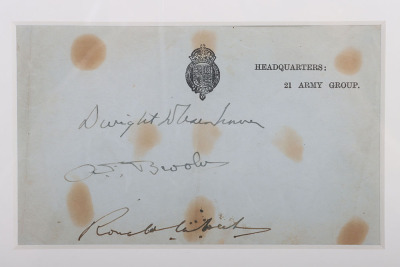 HEADQUARTERS:
21 ARMY GROUP.
Dwight D Eisenhower
Brooke
Ronald